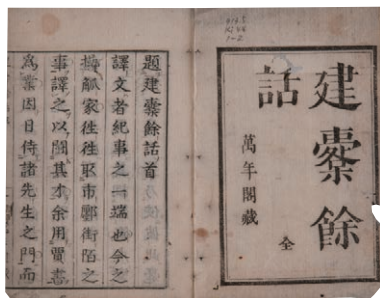 建橐餘
話
萬年閣藏
全
題建橐餘話首
譯文者紀事之一端也今之
操觚家徃徃取市鄽街陌之
事譯之以鬪其才余用賣書
爲業因日侍諸先生之門而